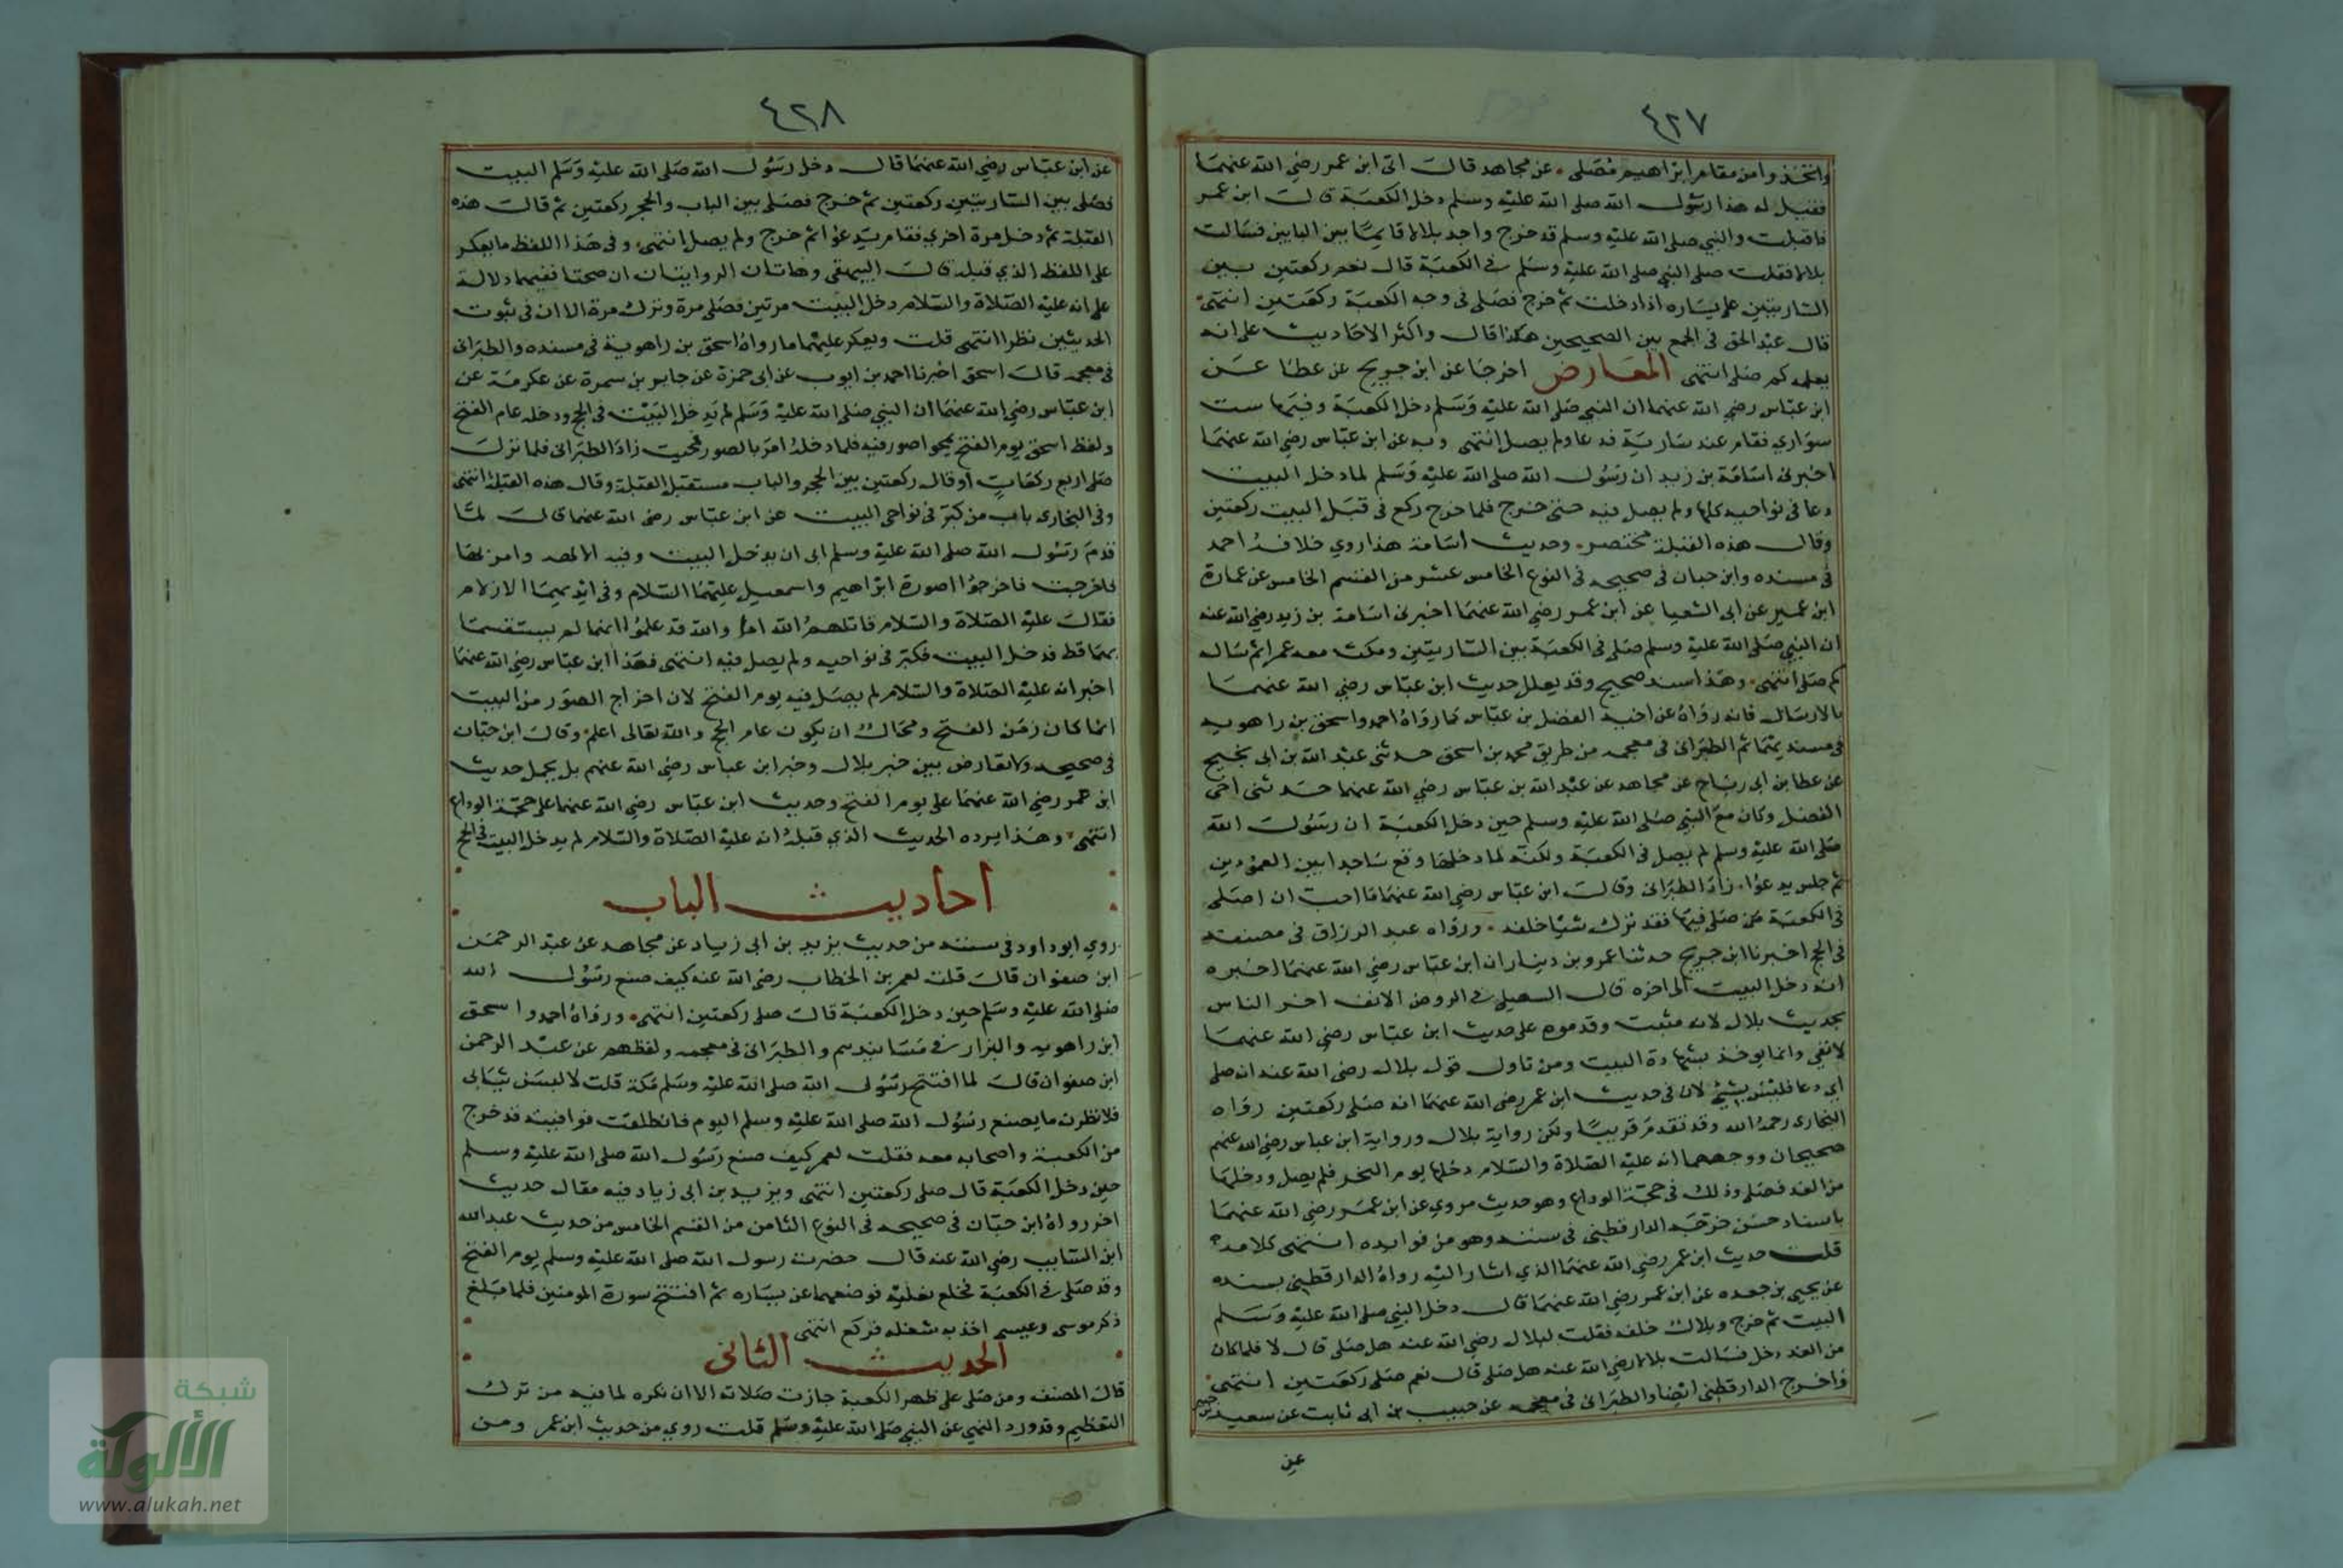 ٤٢٧
واتخذوا من مقام ابراهيم مصلى عن مجاهد قال اتى ابن عمر رضي الله عنهما
فقيل له هذا رسول الله صلى الله عليه وسلم دخل الكعبة قال ابن عمر
فاقبلت والنبي صلى الله عليه وسلم قد خرج واجد بلالا قايمًا بين البابين فسالت
بلالا فقلت صلى النبي صلى الله عليه وسلم في الكعبة قال نعم ركعتين بين
الساريتين على يساره اذا دخلت ثم خرج فصلى في وجه الكعبة ركعتين انتهى
قال عبد الحق في الجمع بين الصحيحين هكذا قال واكثر الاحاديث على انه
يعلمه كم صلى انتهى المعارض اخرجا عن ابن جريج عن عطا عن
ابن عباس رضي الله عنهما ان النبي صلى الله عليه وسلم دخل الكعبة وفيها ست
سواري فقام عند سارية فدعا ولم يصل انتهى وبه عن ابن عباس رضي الله عنهما
اخبرني اسامة بن زيد ان رسول الله صلى الله عليه وسلم لما دخل البيت
دعا في نواحيه كلها ولم يصل فيه حتى خرج فلما خرج ركع في قبل البيت ركعتين
وقال هذه القبلة مختصر وحديث اسامة هذا روي خلافه احمد
في مسنده وابن حبان في صحيحه في النوع الخامس عشر من القسم الخامس عن عمارة
ابن عمير عن ابي الشعثا عن ابن عمر رضي الله عنهما اخبرني اسامة بن زيد رضي الله عنه
ان النبي صلى الله عليه وسلم صلى في الكعبة بين الساريتين ومكث معه عمرا ثم ساله
كم صلى انتهى وهذا سند صحيح وقد يعلل حديث ابن عباس رضي الله عنهما
بالارسال فانه رواه عن اخيه الفضل بن عباس كما رواه احمد واسحق بن راهويه
في مسنديهما ثم الطبراني في معجمه من طريق محمد بن اسحق حدثني عبد الله بن ابي نجيح
عن عطا بن ابي رباح عن مجاهد عن عبد الله بن عباس رضي الله عنهما حدثني اخي
الفضل وكان مع النبي صلى الله عليه وسلم حين دخل الكعبة ان رسول الله
صلى الله عليه وسلم لم يصل في الكعبة ولكنه لما دخلها وقع ساجدا بين العمودين
ثم جلس يدعوا زاد الطبراني وقال ابن عباس رضي الله عنهما ما احب ان اصلى
في الكعبة من صلى فيها فقد ترك شيا خلفه ورواه عبد الرزاق في مصنفه
في الحج اخبرنا ابن جريج حدثنا عمرو بن دينار ان ابن عباس رضي الله عنهما اخبره
انه دخل البيت الى اخره قال السهيلي في الروض الانف اخر الناس
بحديث بلال لانه مثبت وقدموه على حديث ابن عباس رضي الله عنهما
لانفي وانما يوخذ بشهادة البيت ومن تاول قول بلال رضي الله عنه انه صلى
اي دعا فليس بشيء لان في حديث ابن عمر رضي الله عنهما انه صلى ركعتين رواه
البخاري رحمه الله وقد تقدم قريبًا ولكن رواية بلال ورواية ابن عباس رضي الله عنهم
صحيحان ووجههما انه عليه الصلاة والسلام دخلها يوم النحر فلم يصل ودخلها
من الغد فصلى وذلك في حجة الوداع وهو حديث مروي عن ابن عمر رضي الله عنهما
باسناد حسن خرجه الدارقطني في سننه وهو من فوايده انتهى كلامه
قلت حديث ابن عمر رضي الله عنهما الذي اشار اليه رواه الدارقطني بسنده
عن يحيى بن جعده عن ابن عمر رضي الله عنهما قال دخل النبي صلى الله عليه وسلم
البيت ثم خرج وبلال خلفه فقلت لبلال رضي الله عنه هل صلى قال لا فلما كان
من الغد دخل فسالت بلالا رضي الله عنه هل صلى قال نعم صلى ركعتين انتهى
واخرج الدارقطني ايضا والطبراني في معجمه عن حبيب بن ابي ثابت عن سعيد بن جبير
عن
٤٢٨
عن ابن عباس رضي الله عنهما قال دخل رسول الله صلى الله عليه وسلم البيت
فصلى بين الساريتين ركعتين ثم خرج فصلى بين الباب والحجر ركعتين ثم قال هذه
القبلة ثم دخل مرة اخري فقام يدعوا ثم خرج ولم يصل انتهى وفي هذا اللفظ ما يعكر
على اللفظ الذي قبله قال البيهقي وهاتان الروايتان ان صحتا ففيهما دلالة
على انه عليه الصلاة والسلام دخل البيت مرتين فصلى مرة وترك مرة الا ان في ثبوت
الحديثين نظرا انتهى قلت ويعكر عليهما ما رواه اسحق بن راهوية في مسنده والطبراني
في معجمه قال اسحق اخبرنا احمد بن ايوب عن ابي حمزة عن جابر بن سمرة عن عكرمة عن
ابن عباس رضي الله عنهما ان النبي صلى الله عليه وسلم لم يدخل البيت في الحج ودخله عام الفتح
ولفظ اسحق يوم الفتح يمحوا صور فيه فلما دخله امر بالصور فمحيت زاد الطبراني فلما نزل
صلى اربع ركعات او قال ركعتين بين الحجر والباب مستقبل القبلة وقال هذه القبلة انتهى
وفي البخاري باب من كبر في نواحي البيت عن ابن عباس رضي الله عنهما قال لما
قدم رسول الله صلى الله عليه وسلم ابى ان يدخل البيت وفيه الالهه وامر بها
فاخرجت فاخرجوا صورة ابراهيم واسمعيل عليهما السلام وفي ايديهما الازلام
فقال عليه الصلاة والسلام قاتلهم الله اما والله قد علموا انهما لم يستقسما
بهما قط فدخل البيت فكبر في نواحيه ولم يصل فيه انتهى فهذا ابن عباس رضي الله عنهما
اخبر انه عليه الصلاة والسلام لم يصل فيه يوم الفتح لان اخراج الصور من البيت
انما كان زمن الفتح ومحال ان يكون عام الحج والله تعالى اعلم وقال ابن حبان
في صحيحه ولا تعارض بين خبر بلال وخبر ابن عباس رضي الله عنهم بل يحمل حديث
ابن عمر رضي الله عنهما على يوم الفتح وحديث ابن عباس رضي الله عنهما على حجة الوداع
انتهى وهذا يرده الحديث الذي قبله انه عليه الصلاة والسلام لم يدخل البيت في الحج
أحاديث الباب
روي ابو داود في سننه من حديث يزيد بن ابي زياد عن مجاهد عن عبد الرحمن
ابن صفوان قال قلت لعمر بن الخطاب رضي الله عنه كيف صنع رسول الله
صلى الله عليه وسلم حين دخل الكعبة قال صلى ركعتين انتهى ورواه احمد واسحق
ابن راهويه والبزار في مسانيدهم والطبراني في معجمه ولفظهم عن عبد الرحمن
ابن صفوان قال لما افتتح رسول الله صلى الله عليه وسلم مكة قلت لالبسن ثيابي
فلانظرن ما يصنع رسول الله صلى الله عليه وسلم اليوم فانطلقت فوافيته قد خرج
من الكعبة واصحابه معه فقلت لعمر كيف صنع رسول الله صلى الله عليه وسلم
حين دخل الكعبة قال صلى ركعتين انتهى ويزيد بن ابي زياد فيه مقال حديث
اخر رواه ابن حبان في صحيحه في النوع الثامن من القسم الخامس من حديث عبد الله
ابن السايب رضي الله عنه قال حضرت رسول الله صلى الله عليه وسلم يوم الفتح
وقد صلى في الكعبة فخلع نعليه فوضعهما عن يساره ثم افتتح سورة المومنين فلما بلغ
ذكر موسى وعيسى اخذته سعلة فركع انتهى
الحديث الثاني
قال المصنف ومن صلى على ظهر الكعبة جازت صلاته الا انه يكره لما فيه من ترك
التعظيم وقد ورد النهي عن النبي صلى الله عليه وسلم قلت روي من حديث ابن عمر ومن
شبكة
الألوكة
www.alukah.net